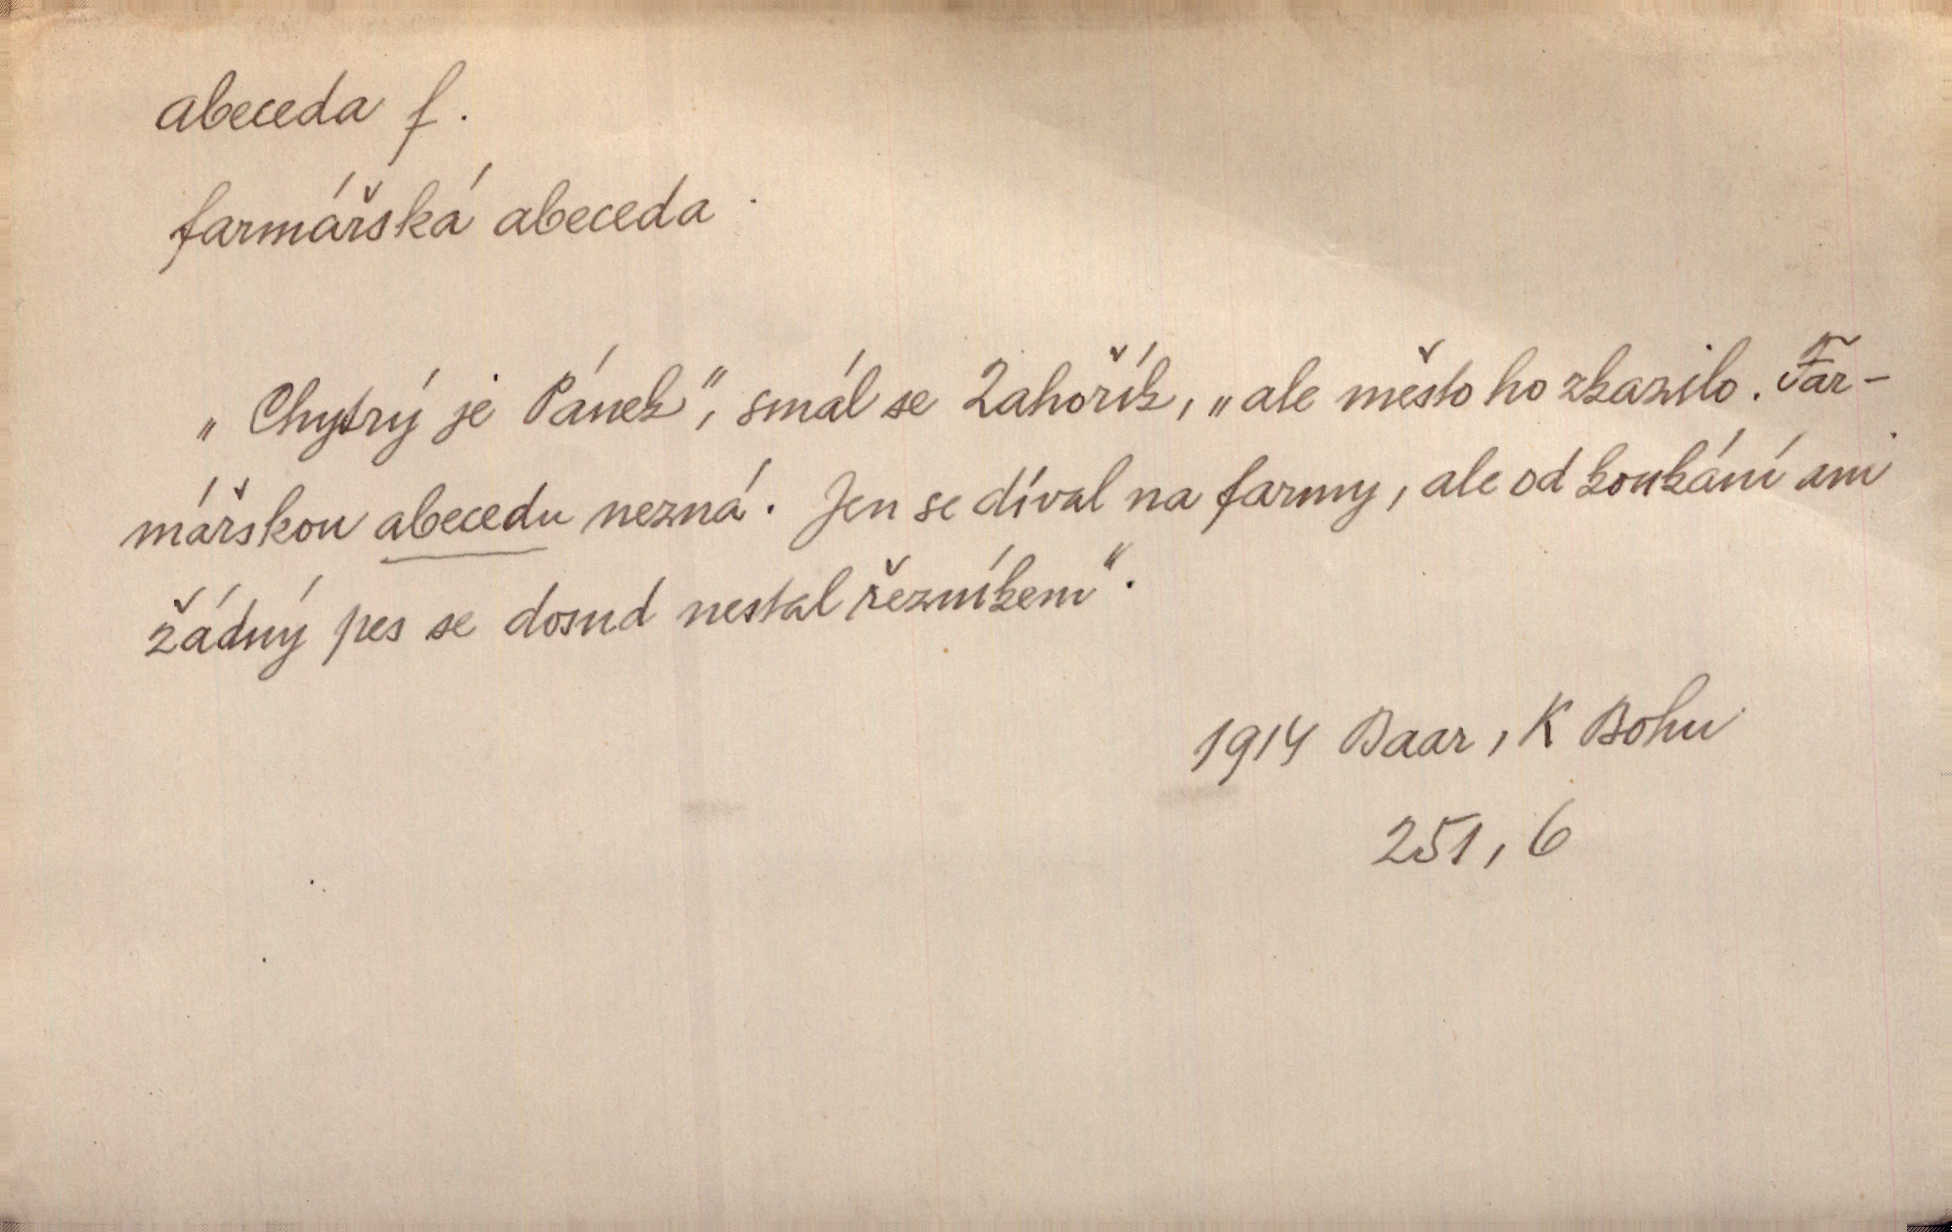 abeceda f.
farmářská abeceda
„Chytrý je Pánek“, smál se Zahořík, „ale město ho zkazilo. Far-
mářskou abecedu nezná. Jen se díval na farmy, ale od koukání ani
žádný pes se dosud nestal řezníkem“.
1914 Baar, K Bohu
251, 6